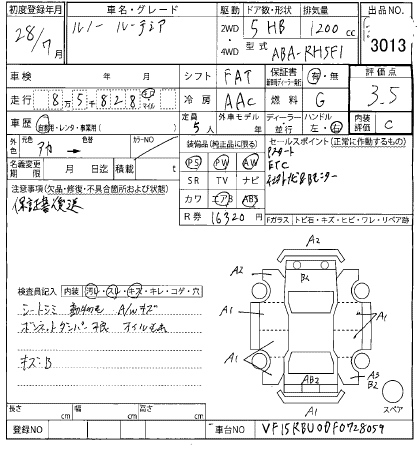 初度登録年月 車名・グレード 駆動 ドア数・形状 排気量 出品NO.
28/7月 ルノー ルーテシア 2WD・4WD 5HB 1200cc 3013
型式 ABA-RH5F1
車検 年 月 シフト FAT 保証書 有・無 評価点
走行 8万5千828 キロ マイル 冷房 AAC 燃料 G 3.5
車歴 自家用・レンタ・事業用( ) 定員 5人 外車モデル 年 ディーラー・並行 ハンドル 左・右 内装評価 C
外色 元色 アカ 色替 カラーNO
装備品(純正品に限る) セールスポイント(正常に作動するもの)
PS PW AW
ETC
名義変更期限 月 日迄 積載 t
SR TV ナビ
注意事項(欠品・修復・不具合箇所および状態)
カワ エアB ABS
R券 16320 円
Fガラス トビ石・キズ・ヒビ・ワレ・リペア跡
A2
A2 B2
A1 A1
A1 A1
A2 AB2 A3 B2
A1
検査員記入 内装 汚レ・スレ・キズ・キレ・コゲ・穴
シートシミ A/Wキズ
キズ:B
スペア
長さ cm 幅 cm 高さ cm
登録NO 車台NO VF15RBU0DF0728059